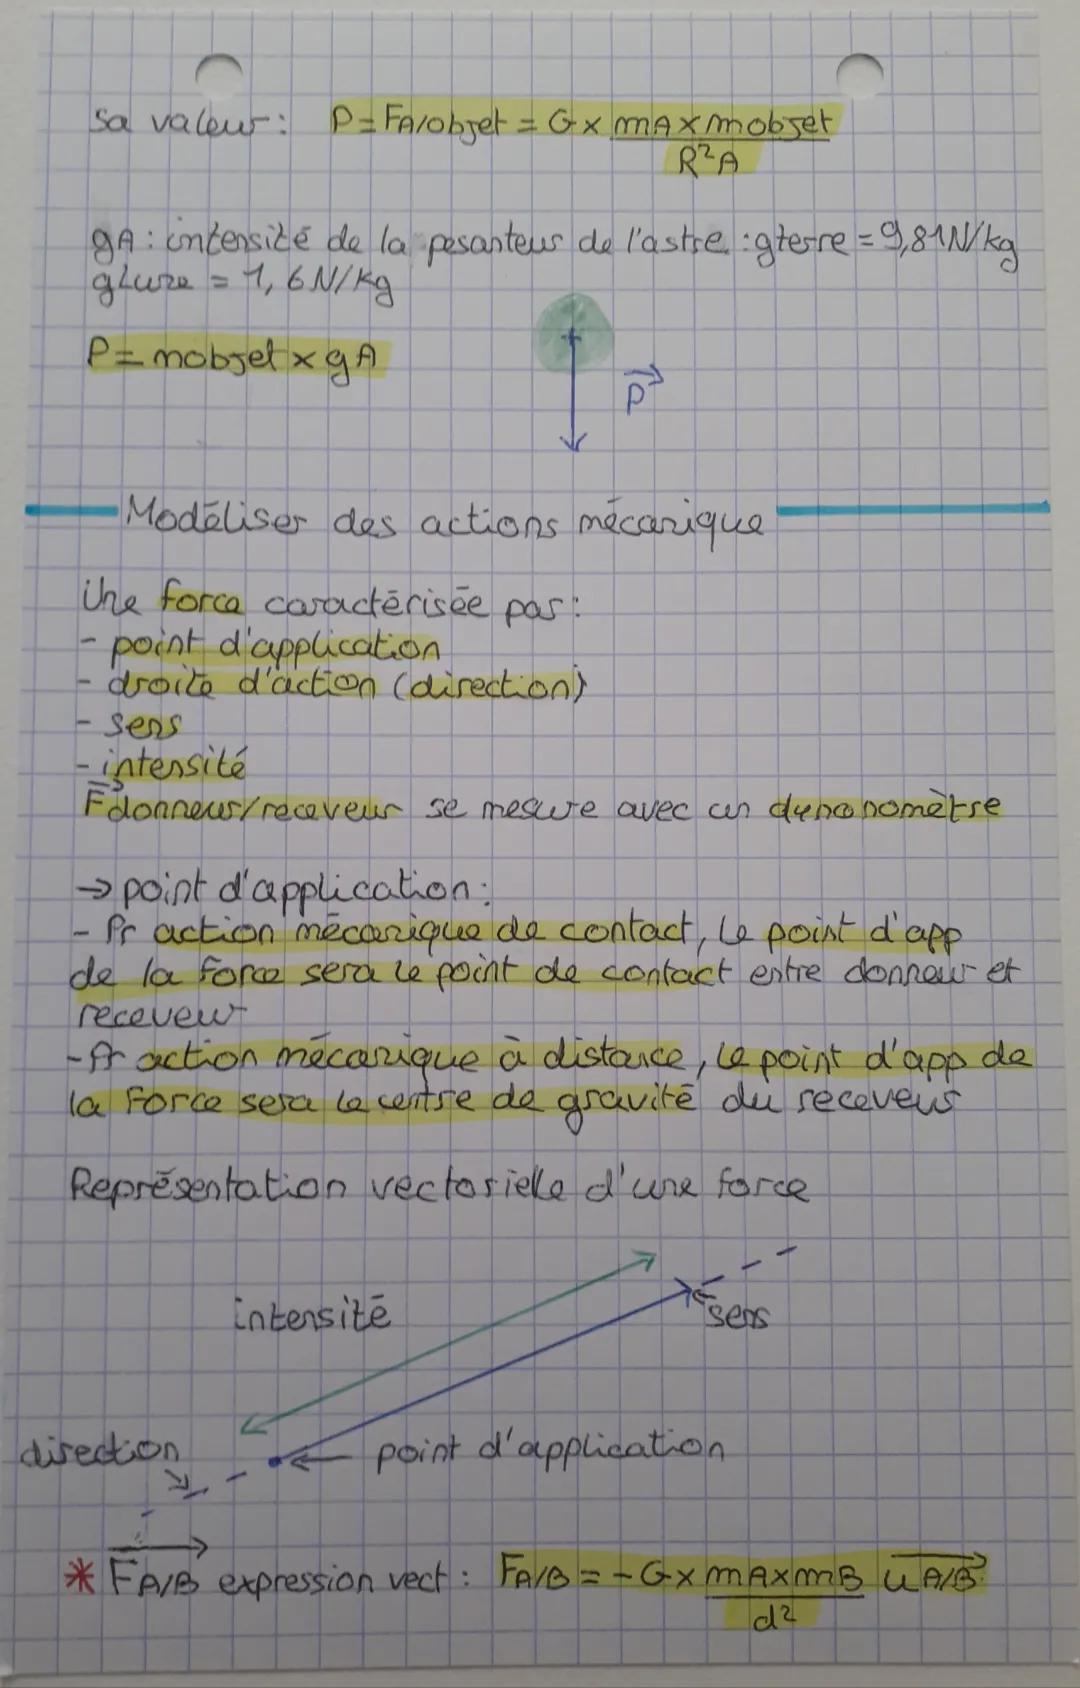 Sa valeur : P = FA/objet = G x mA x mobjet
R²A
gA : intensité de la pesanteur de l'astre : gterre = 9,81N/kg
gLune = 1,6 N/kg
P = mobjet x gA
P
Modéliser des actions mécanique
Une force caractérisée par :
- point d'application
- droite d'action (direction)
- sens
- intensité
F donneur/receveur se mesure avec un dynanomètre
→ point d'application :
- Pr action mécanique de contact, le point d'app
de la force sera le point de contact entre donneur et
receveur
- Pr action mécanique à distance, le point d'app de
la force sera le centre de gravité du receveur
Représentation vectorielle d'une force
intensité
sens
direction
point d'application
* FA/B expression vect : FA/B = - G x mA x mB uA/B
d²